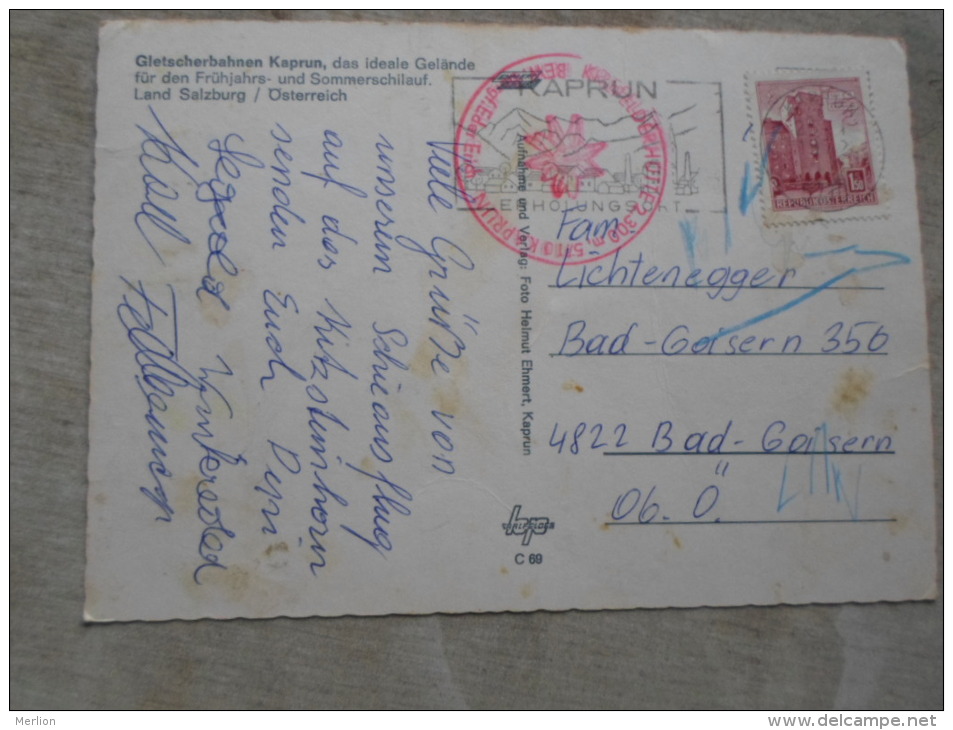 Gletscherbahnen Kaprun, das ideale Gelände
für den Frühjahrs- und Sommerschilauf.
Land Salzburg / Österreich
Viele Grüße von
unserem Schiausflug
auf das Kitzsteinhorn
senden Euch
Aufnahme und Verlag: Foto Helmut Ehmert, Kaprun
KAPRUN
ERHOLUNGSORT
2.300 m, 5710 KAPRUN
1.50
REPUBLIK ÖSTERREICH
Fam.
Lichtenegger
Bad-Goisern 356
4822 Bad-Goisern
Ob. Ö.
C 69
Merlion
www.delcampe.net